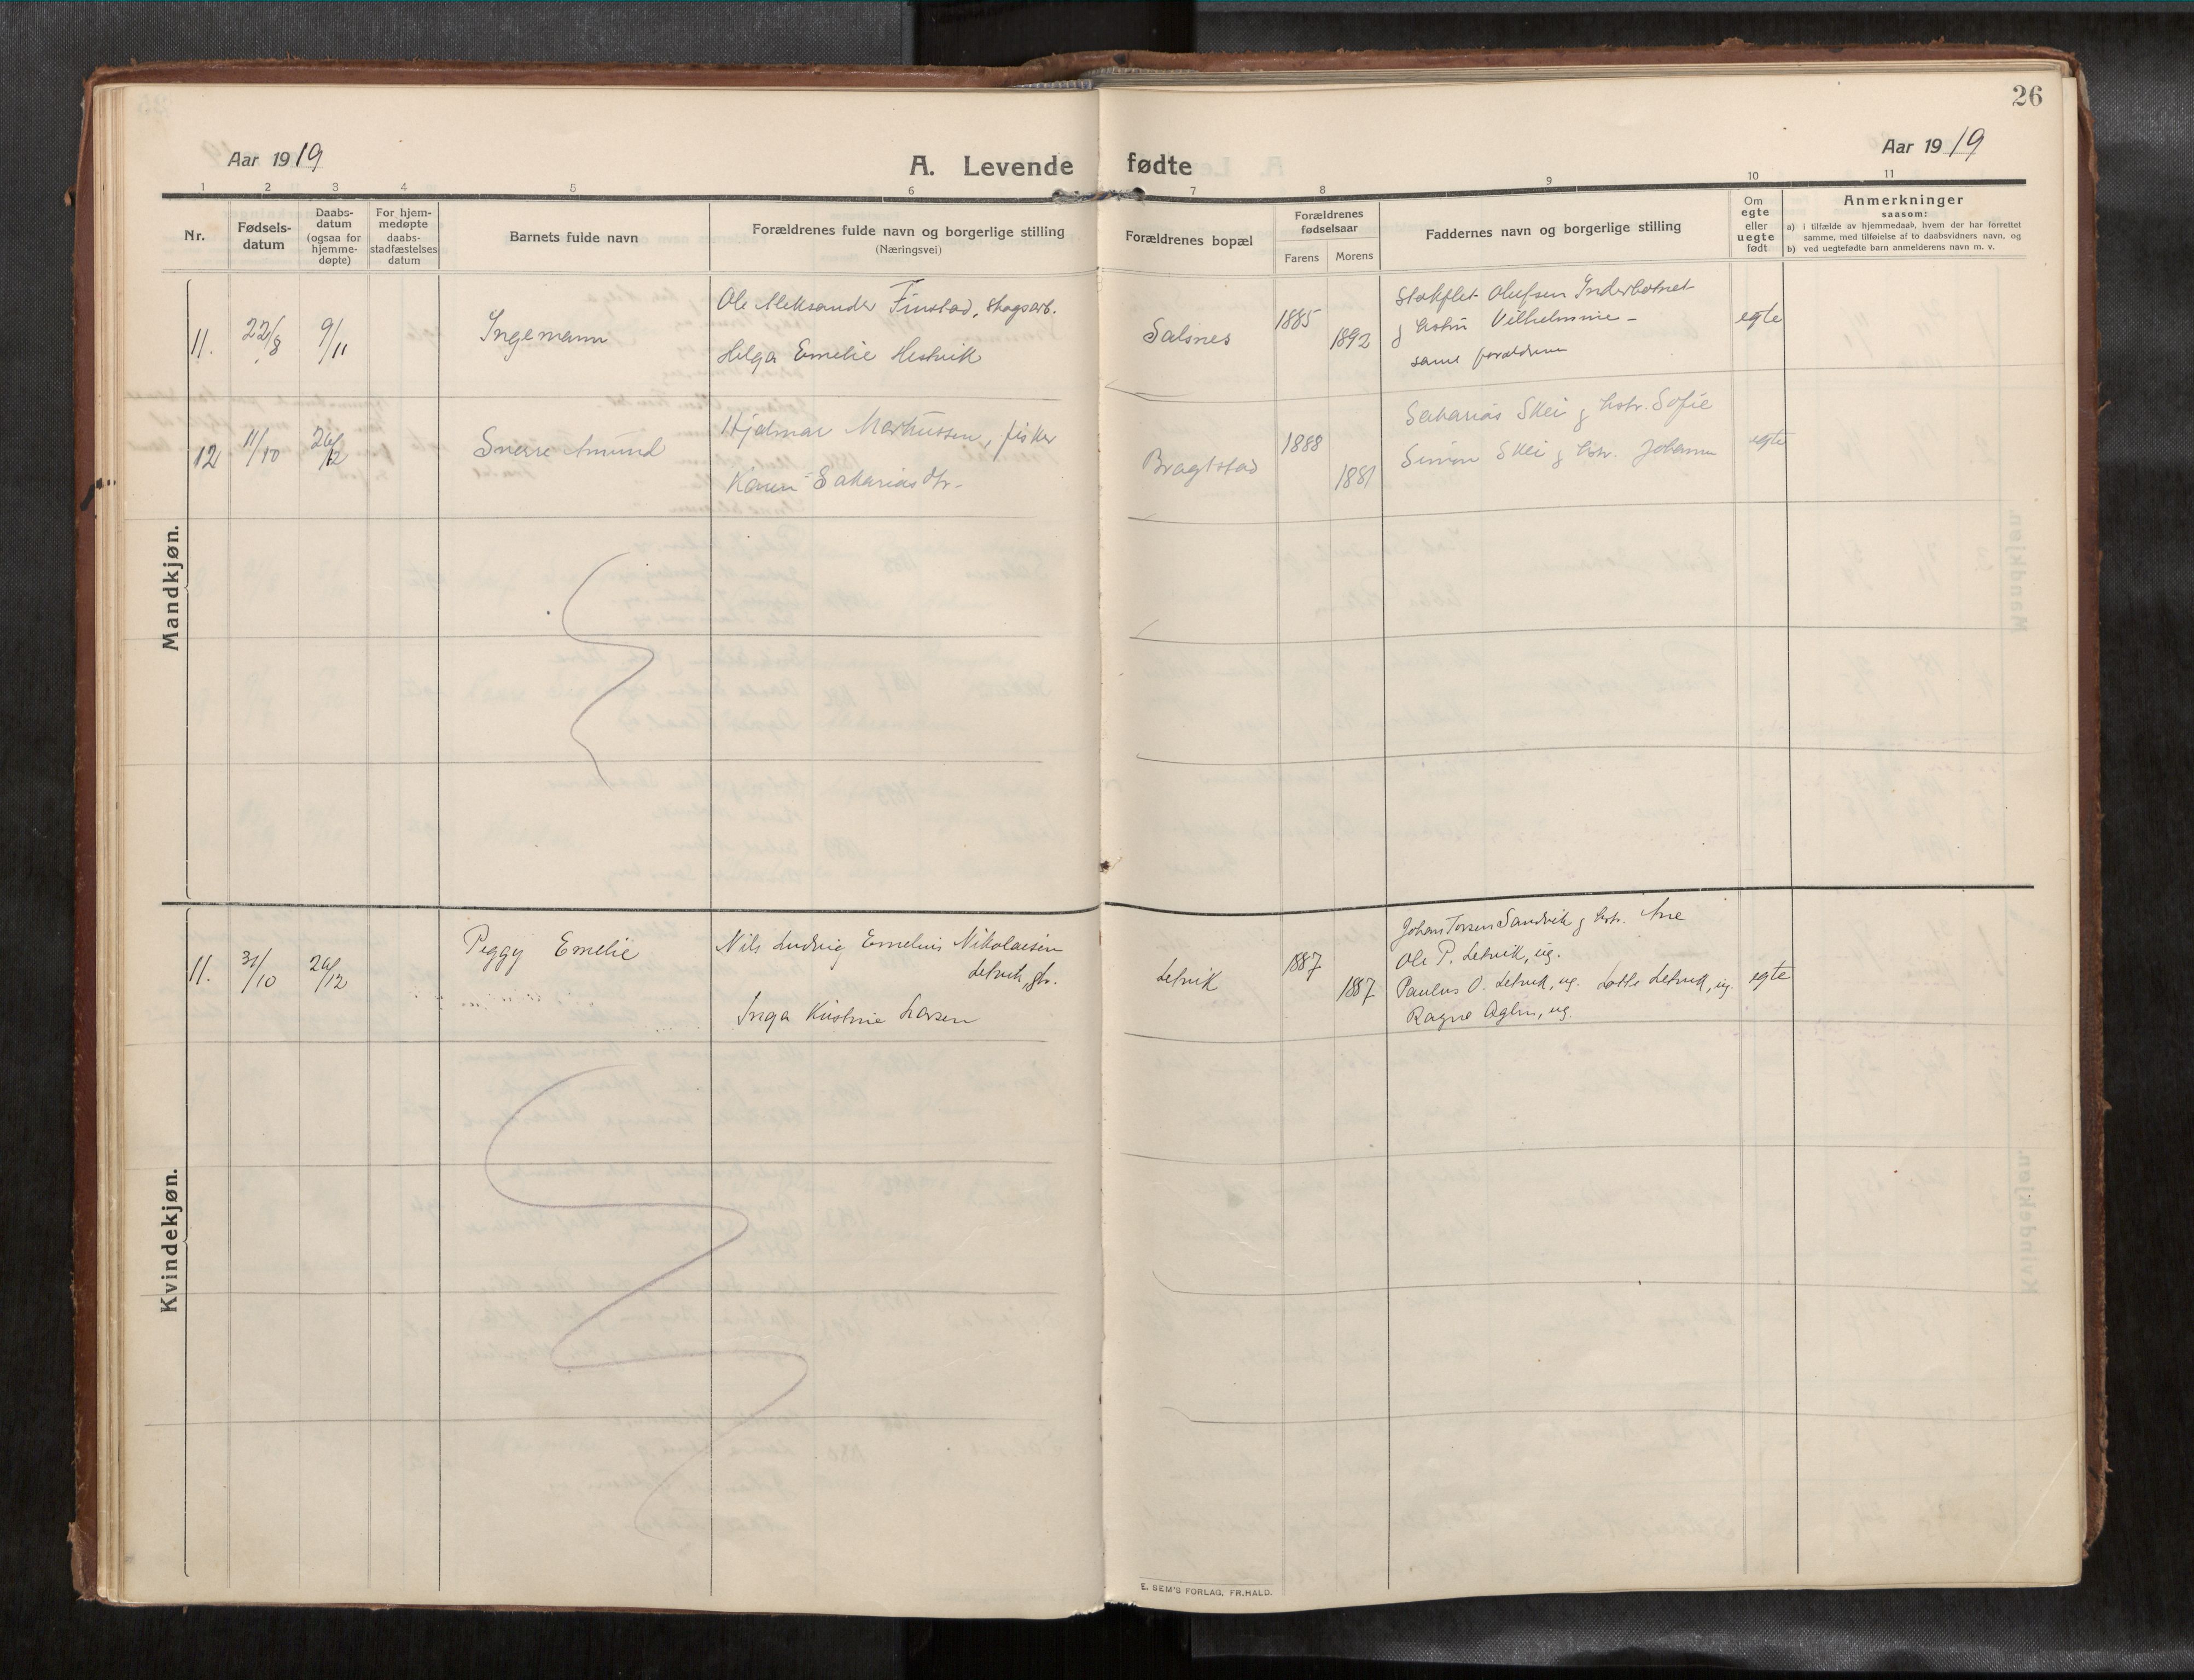 26
Aar 1919
A. Levende fødte
Aar 1919
1 2 3 4 5 6 7 8 9 10 11
Nr.
Fødsels-
datum
Daabs-
datum
(ogsaa for
hjemme-
døpte)
For hjem-
medøpte
daabs-
stadfæstelses
datum
Barnets fulde navn
Forældrenes fulde navn og borgerlige stilling
(Næringsvei)
Forældrenes bopæl
Forældrenes
fødselsaar
Farens Morens
Faddernes navn og borgerlige stilling
Om
egte
eller
uegte
født
Anmerkninger
saasom:
a) i tilfælde av hjemmedaab, hvem der har forrettet
samme, med tilføielse af to daabsvidners navn, og
b) ved uegtefødte barn anmelderens navn m. v.
Mandkjøn.
11. 22/8 9/11 Ingemann
Ole Aleksander Finstad, skogsarb.
Helga Emelie Hestvik
Salsnes 1885 1892
Stokflet Olufsen Inderbotnet
g hustru Vilhelmine -
samt forældrene
egte
12 11/10 26/12 Sverre Amund
Hjalmar Markussen, fisker
Karen Sakariasdtr.
Bragtstad 1888 1881
Sakarias Skei g hstr. Sofie
Simon Skei g hstr. Johanna
egte
Kvindekjøn.
11. 31/10 26/12 Peggy Emelie
Nils Ludvig Emelius Nikolaisen
Letvik, gbr.
Inga Kristine Larsen
Letvik 1887 1887
Johan Torsen Sandvik g hstr. Ane
Ole P. Letvik, ug.
Paulus O. Letvik, ug. Lotte Letvik, ug.
Ragna Aglen, ug.
egte
E. SEM'S FORLAG, FR.HALD.